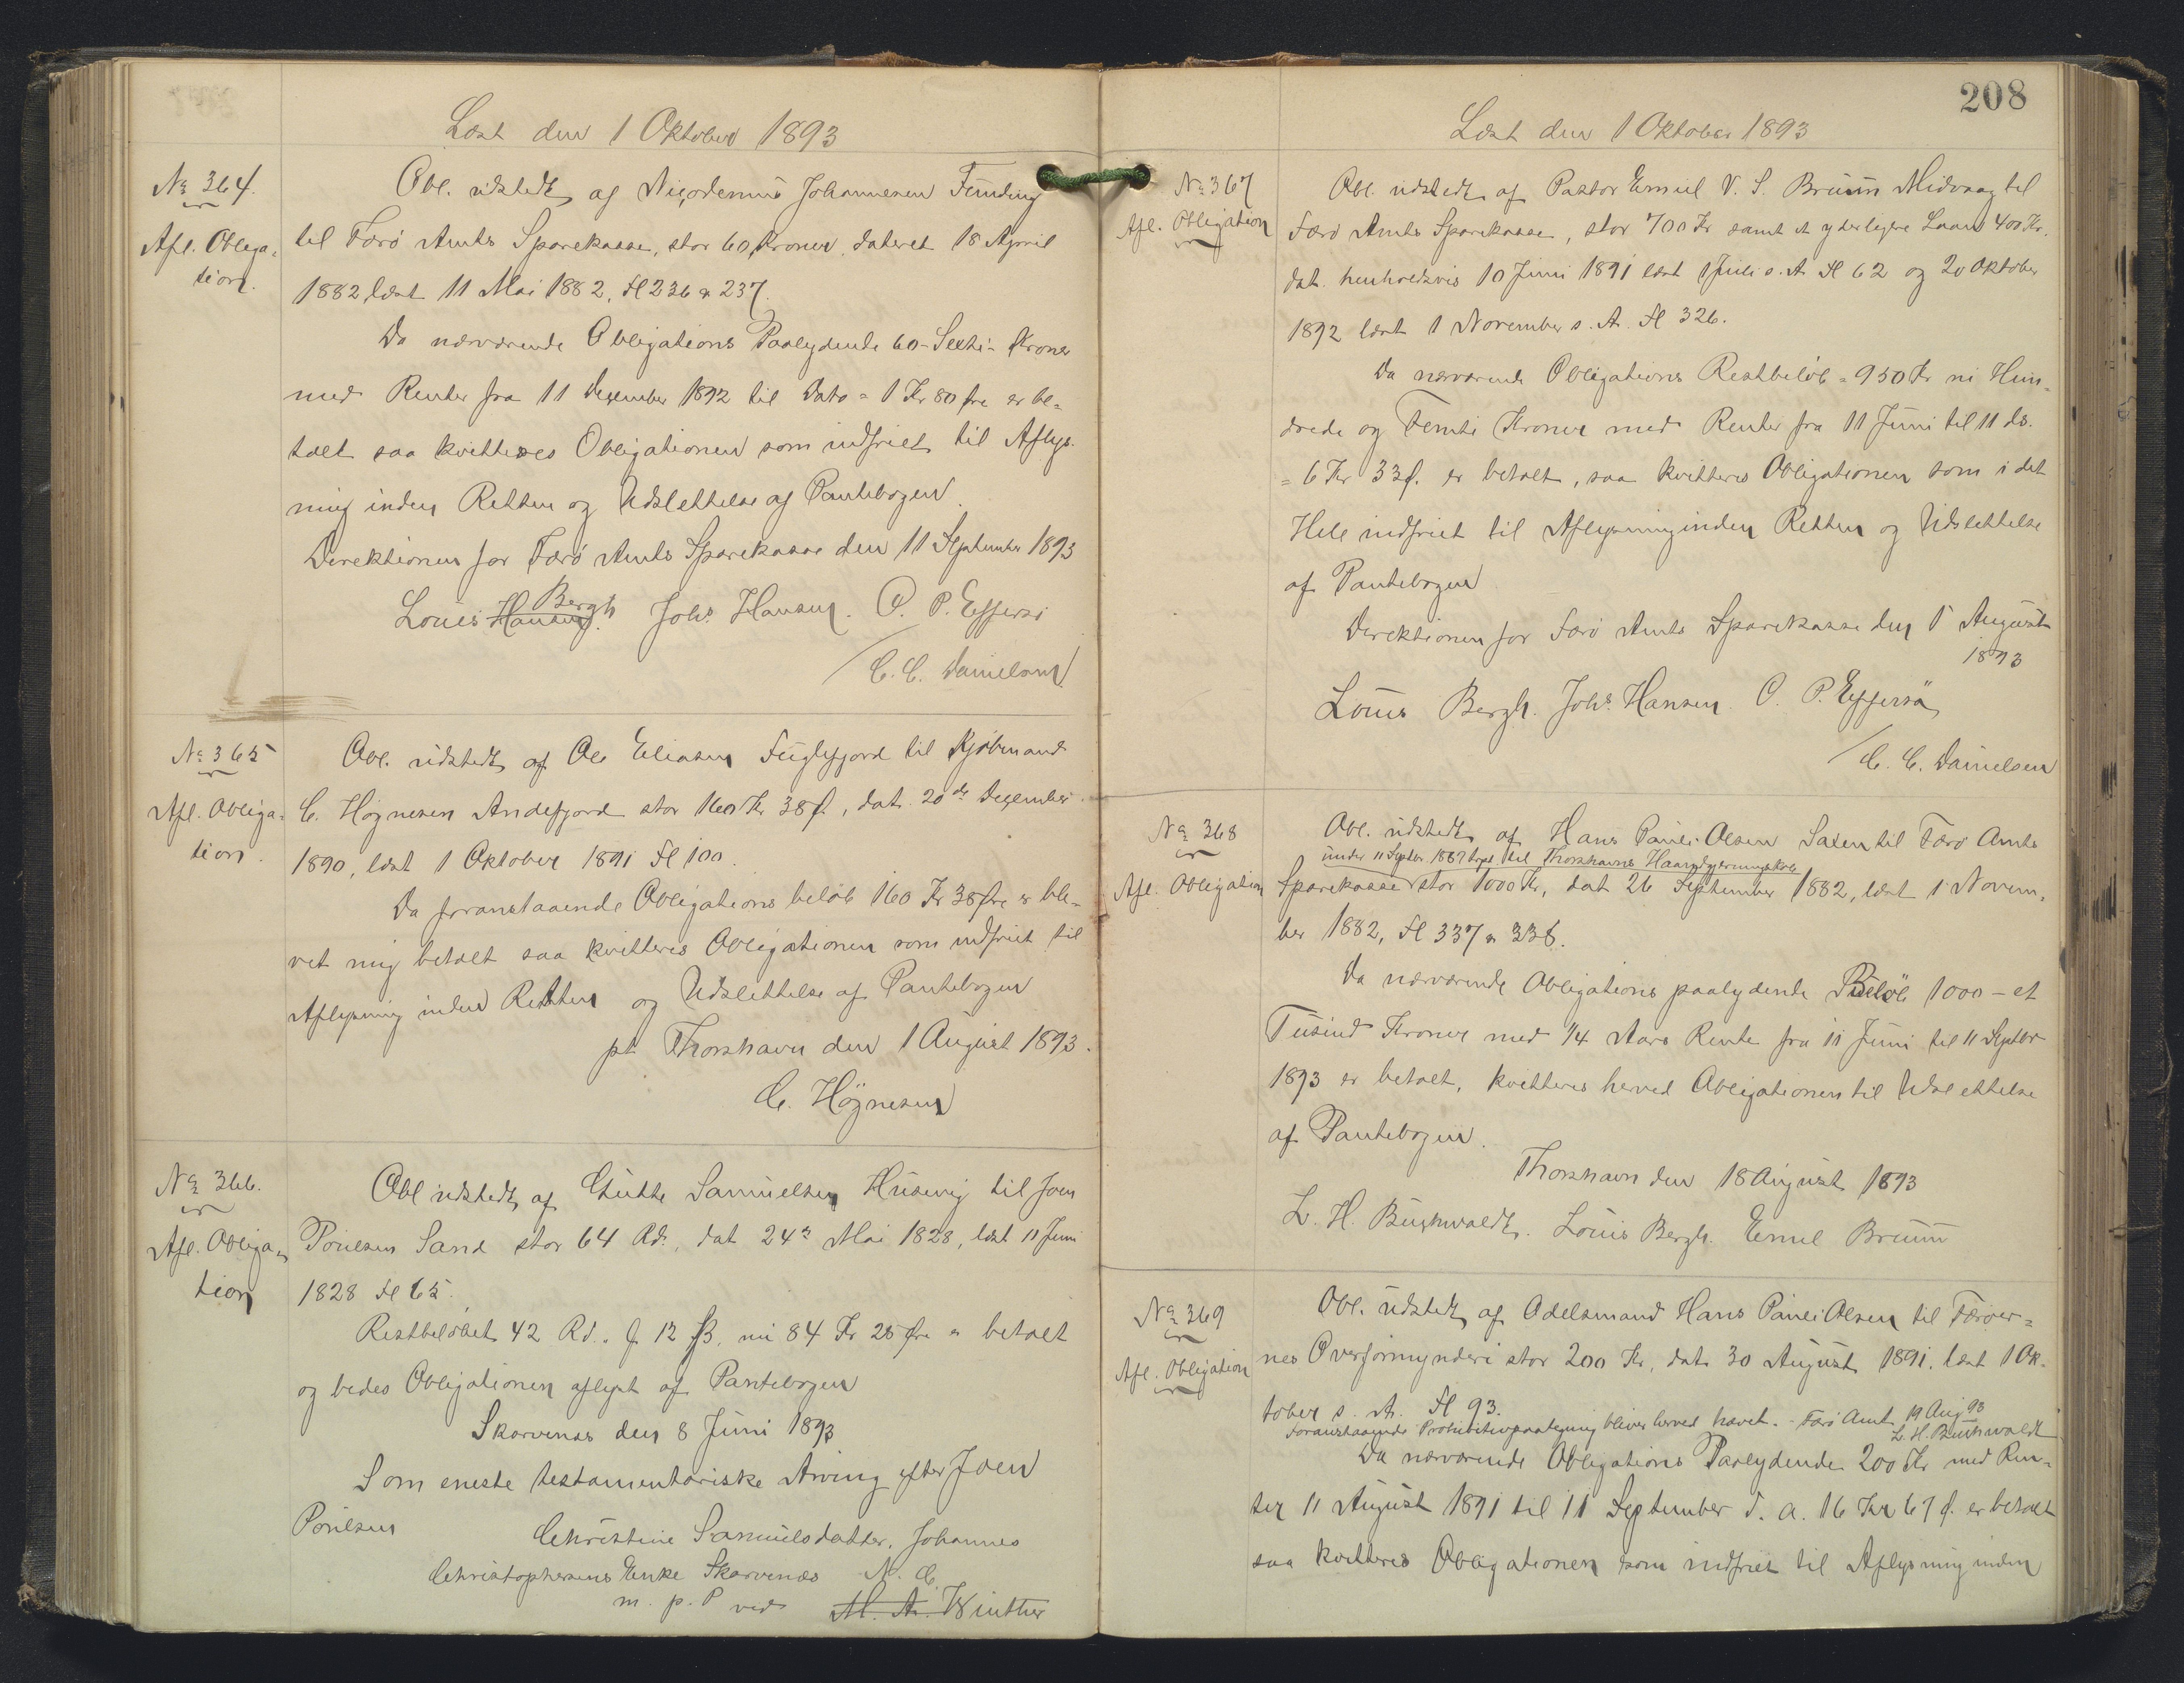 Læst den 1 Oktober 1893
No 364.
Afl. Obliga-
tion.
Obl. udstedt af Nicodemus Johannesen Funding
til Færö Amts Sparekasse, stor 60 Kroner, dateret 18 April
1882, læst 11 Mai 1882, Fl 236 & 237.
Da nærværende Obligations Paalydende 60 - Sexti - Kroner
med Renter fra 11 Dezember 1892 til Dato = 1 Kr 80 Øre er be-
talt saa kvitteres Obligationen som indfriet til Aflys-
ning inden Retten og Udslettelse af Pantebogen.
Direktionen for Færö Amts Sparekasse den 11 September 1893
Louis Hansen Bergh Johs. Hansen. O. P. Effersö
/ C. C. Danielsen
No 365
Afl. Obliga-
tion.
Obl. udstedt af Ole Eliasen Fuglefjord til Kjöbmand
C. Högnesen Andefjord stor 160 Kr 38 Ø, dat. 20de Dezember
1890, læst 1 Oktober 1891 Fl 100.
Da foranstaaende Obligations belöb 160 Kr 38 Øre er ble-
vet mig betalt saa kvitteres Obligationen som indfriet til
Aflysning inden Retten og Udslettelse af Pantebogen
pt Thorshavn den 1 August 1893.
C. Högnesen
No 366.
Afl. Obliga-
tion
Obl udstedt af Gutte Samuelsen Husevig til Joen
Poulsen Sand stor 64 Rd., dat 24 Mai 1828, læst 11 Juni
1828 Fl 65.
Restbelöbet 42 Rd. 12 ß. nu 84 Kr 25 Øre er betalt
og bedes Obligationen aflyst af Pantebogen
Skarvenæs den 8 Juni 1893
Som eneste testamentariske Arving efter Joen
Poulsen
Christine Samuelsdatter, Johannes
Christophersens Enke Skarvenæs N. C.
m. p. P ved M. A. Winther
208
Læst den 1 Oktober 1893
No 367
Afl. Obligation
Obl. udstedt af Pastor Emiel V. S. Bruun Midvaag til
Færö Amts Sparekasse, stor 700 Kr samt et yderligere Laan 400 Kr.
dat. henholdsvis 10 Juni 1891 læst 1 Juli s. A. Fl 62 og 20 Oktober
1892 læst 1 November s. A. Fl 326.
Da nærværende Obligations Restbelöb = 950 Kr ni Hun-
drede og Femti Kroner med Renter fra 11 Juni til 11 ds.
= 6 Kr 33 Ø. er betalt, saa kvitteres Obligationen som i det
Hele indfriet til Aflysning inden Retten og Udslettelse
af Pantebogen
Direktionen for Færö Amts Sparekasse den 1 August
1893
Louis Bergh. Johs. Hansen. O. P. Effersö
/ C. C. Danielsen
No 368
Afl. Obligation
Obl. udstedt af Hans Pauli Olsen Saxen til Færö Amts
under 11 Septbr 1887 trpt til Thorshavns Haandgjerningsskole
Sparekasse stor 1000 Kr, dat 26 September 1882, læst 1 Novem-
ber 1882, Fl 337 & 338.
Da nærværende Obligations paalydende Belöb 1000 - et
Tusind Kroner med 1/4 Aars Rente fra 11 Juni til 11 Septbr
1893 er betalt, kvitteres herved Obligationen til Udslettelse
af Pantebogen.
Thorshavn den 18 August 1893
L. H. Buchwaldt. Louis Bergh. Emil Bruun
No 369
Afl. Obligation
Obl. udstedt af Odelsmand Hans Pauli Olsen til Færöer-
nes Overformynderi stor 200 Kr, dat. 30 August 1891. læst 1 Ok-
tober s. A. Fl 93.
Foranstaaende Prohibitivpaategning bliver herved hævet. - Færö Amt 19 Aug 93
L. H. Buchwaldt
Da nærværende Obligations Paalydende 200 Kr med Ren-
ter 11 August 1891 til 11 September d. a. 16 Kr 67 Ø. er betalt
saa kvitteres Obligationen som indfriet til Aflysning inden